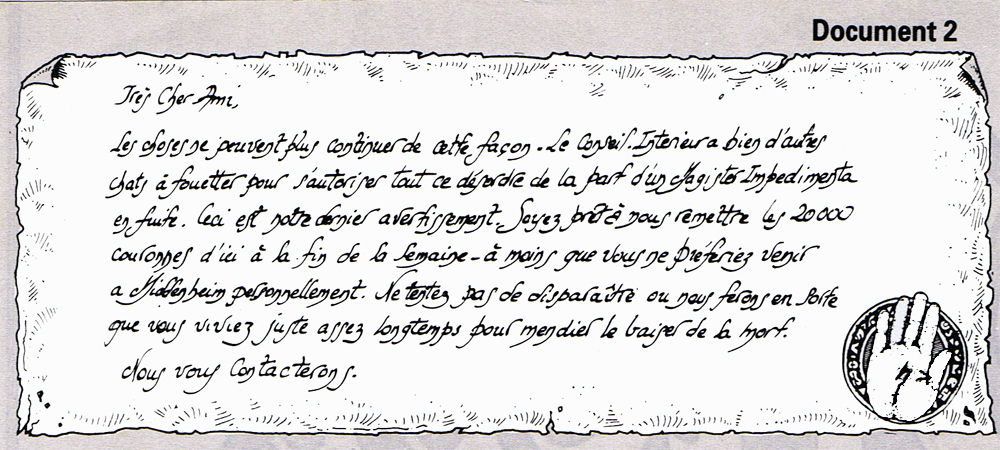 Document 2
Très Cher Ami,
Les choses ne peuvent plus continuer de cette façon. Le Conseil Interieur a bien d'autres
chats à fouetter pour s'autoriser tout ce désordre de la part d'un Magister Impedimenta
en fuite. Ceci est notre dernier avertissement. Soyez prêt à nous remettre les 20000
couronnes d'ici à la fin de la Semaine - à moins que vous ne préfériez venir
a Middenheim personnellement. Ne tentez pas de disparaître ou nous ferons en sorte
que vous viviez juste assez longtemps pour mendier le baiser de la mort.
Nous vous Contacterons.